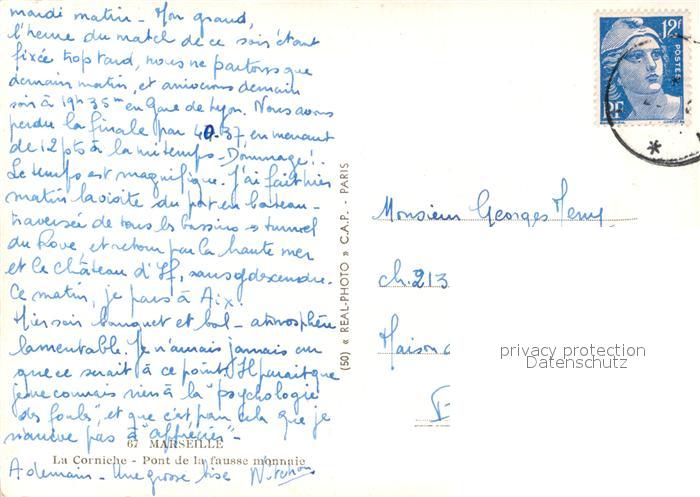 mardi matin - Mon grand,
l'heure du match de ce soir étant
fixée trop tard, nous ne partons que
demain matin, et arriverons demain
soir à 19h 35m en Gare de Lyon. Nous avons
perdu la finale par 40.37, en menant
de 12 pts à la mi temps - Dommage !.
Le temps est magnifique. J'ai fait hier
matin la visite du port en bateau -
traversée de tous les bassins → tunnel
du Rove et retour par la haute mer
et le château d'If, sans y descendre.
Ce matin, je pars à Aix.
Hier soir banquet et bal - atmosphère
lamentable. Je n'aurais jamais cru
que ce serait à ce point. Il paraît que
je ne connais rien à la "psychologie
des foules", et que c'est pour cela que je
n'arrive pas à "apprécier" -
67 MARSEILLE
La Corniche - Pont de la fausse monnaie
A demain - Une grosse bise
(50) « REAL-PHOTO » C.A.P. - PARIS
12F
POSTES
RF
Monsieur Georges
ch. 213
Maison
privacy protection
Datenschutz